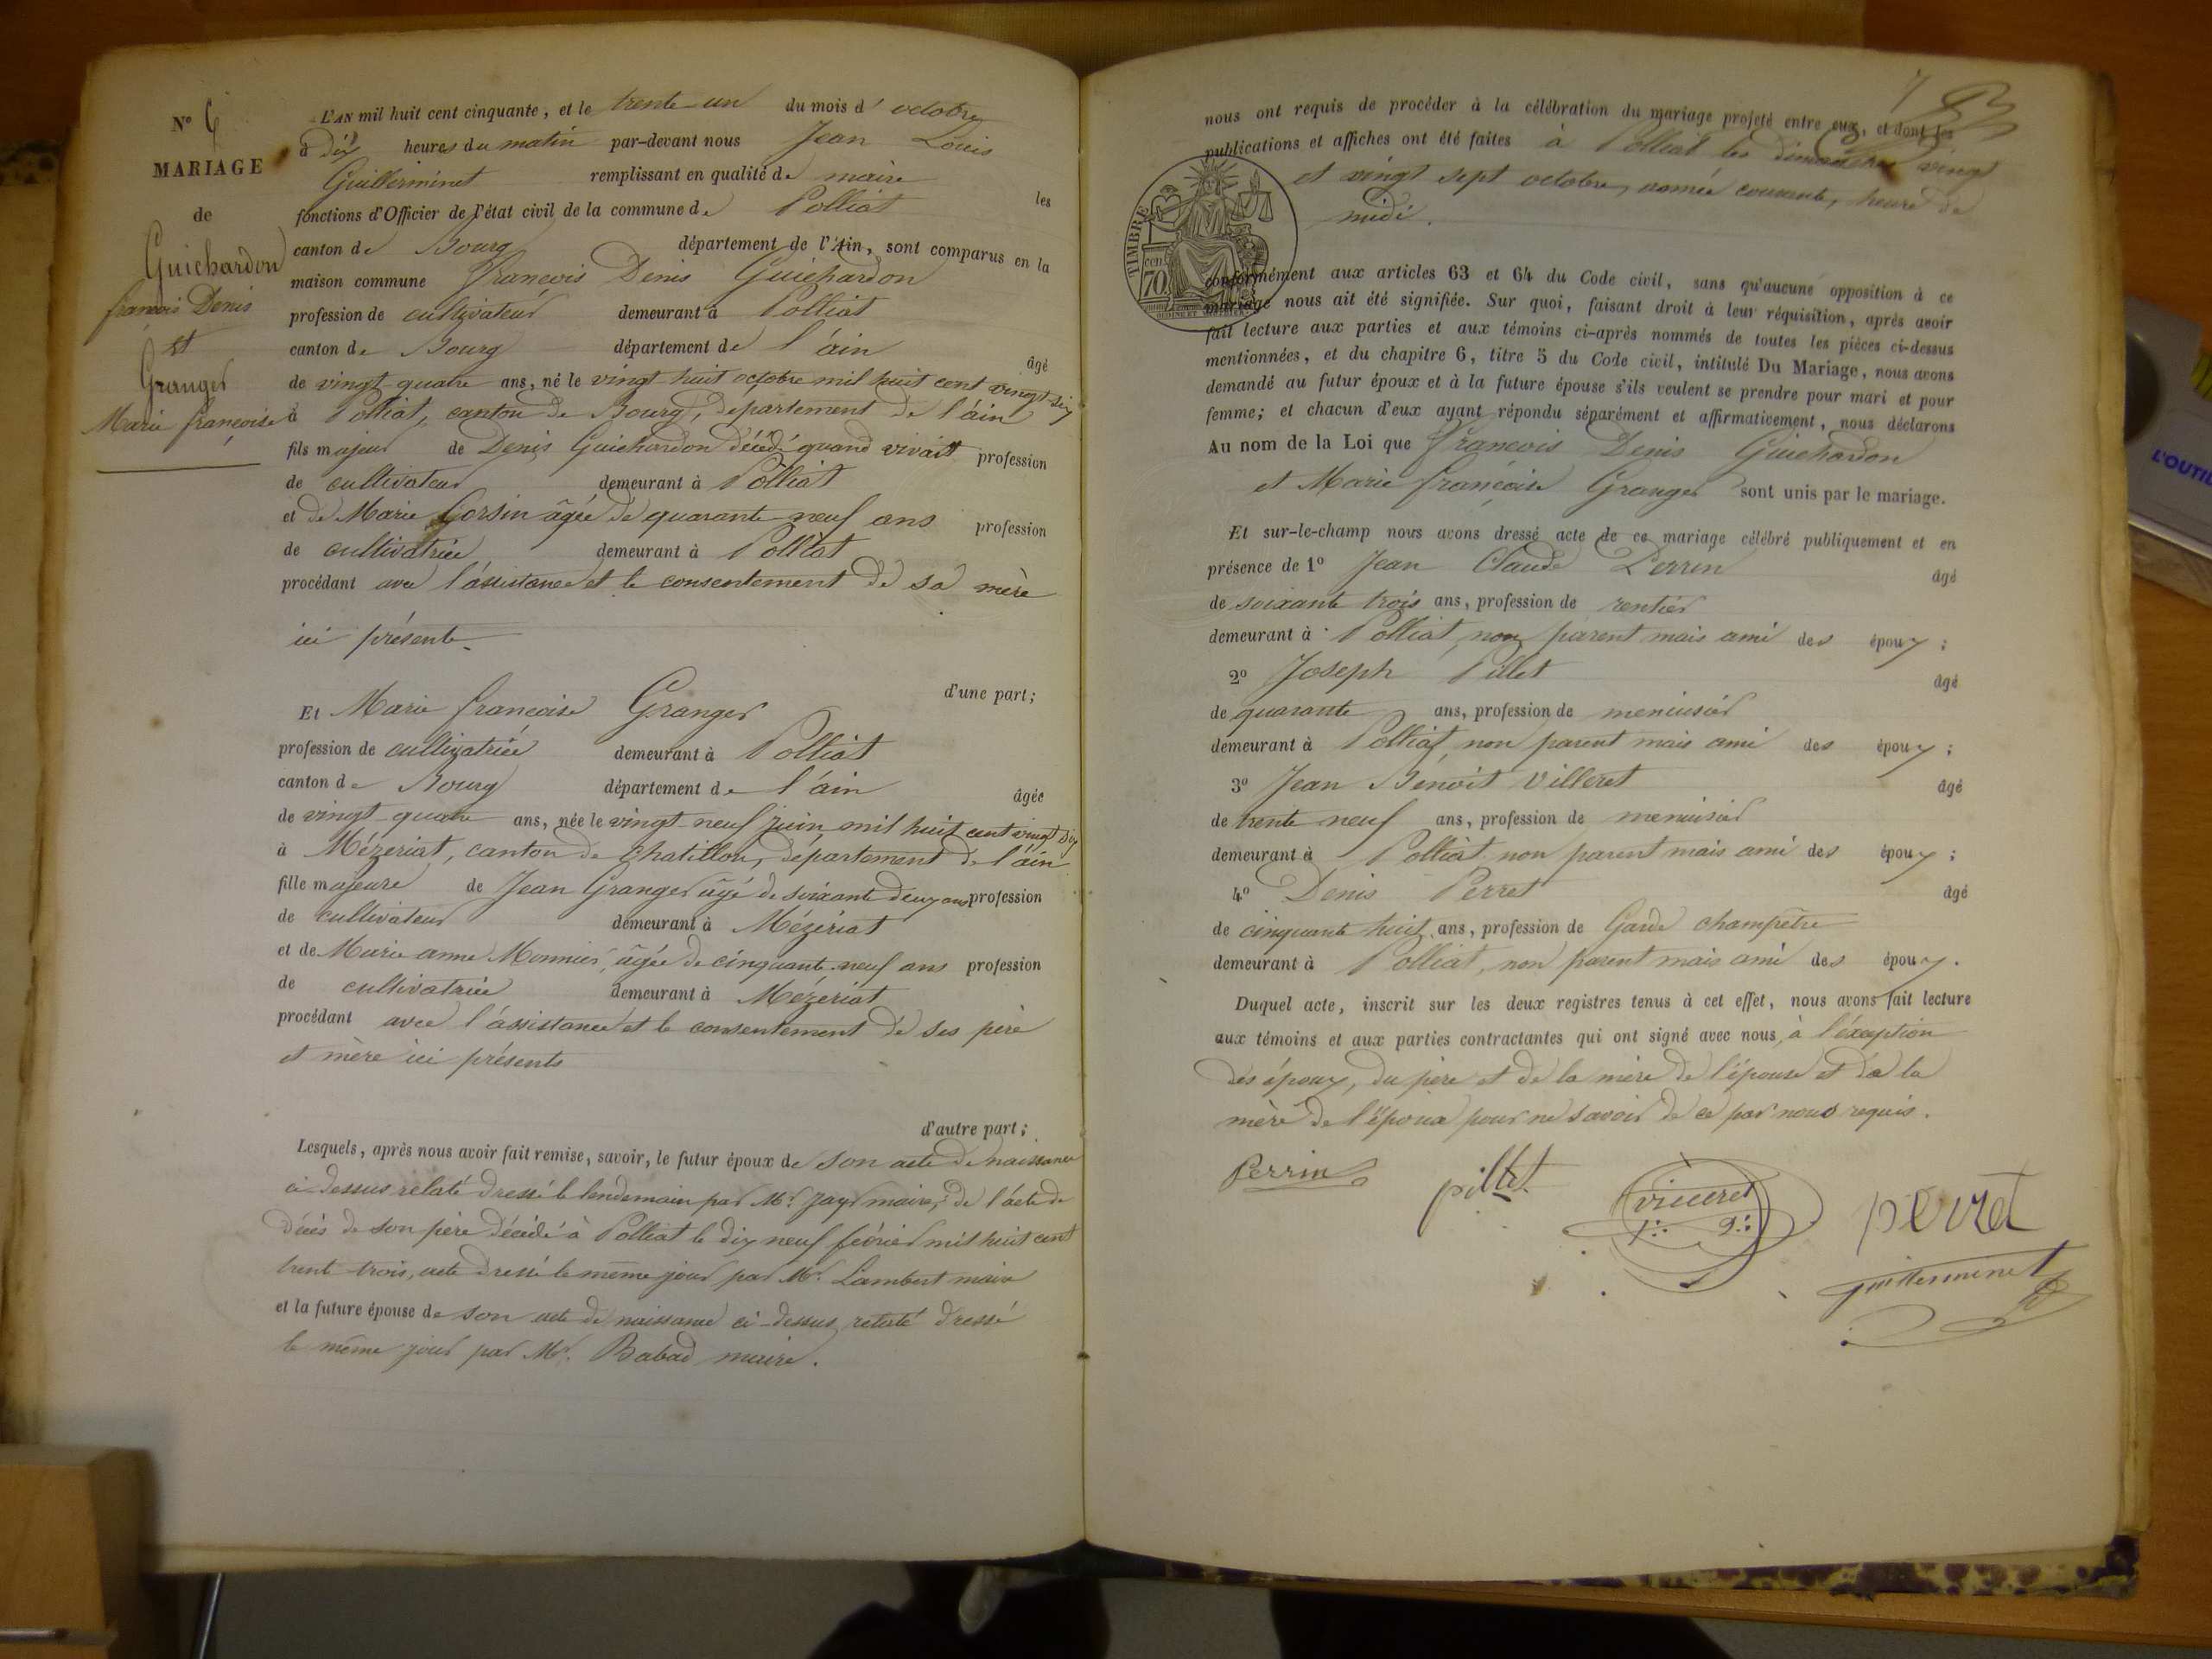 N° 6
MARIAGE
de
Guichardon
francois Denis
et
Granger
Marie francoise
L'AN mil huit cent cinquante, et le trente un du mois d' octobre
à dix heures du matin par-devant nous Jean Louis
Guillerminet remplissant en qualité de maire les
fonctions d'Officier de l'état civil de la commune de Polliat
canton de Bourg département de l'Ain, sont comparus en la
maison commune francois Denis Guichardon
profession de cultivateur demeurant à Polliat
canton de Bourg département de l'ain âgé
de vingt quatre ans, né le vingt huit octobre mil huit cent vingt six
à Polliat, canton de Bourg, département de l'ain
fils majeur de Denis Guichardon décédé quand vivait profession
de cultivateur demeurant à Polliat
et de Marie Corsin âgée de quarante neuf ans profession
de cultivatrice demeurant à Polliat
procédant avec l'assistance et le consentement de sa mère
ici présente
d'une part;
Et Marie francoise Granger
profession de cultivatrice demeurant à Polliat
canton de Bourg département de l'ain âgée
de vingt quatre ans, née le vingt neuf juin mil huit cent vingt six
à Mézeriat, canton de Chatillon, département de l'ain
fille majeure de Jean Granger âgé de soixante deux ans profession
de cultivateur demeurant à Mézériat
et de Marie anne Monnier, âgée de cinquante neuf ans profession
de cultivatrice demeurant à Mézériat
procédant avec l'assistance et le consentement de ses père
et mère ici présents
d'autre part;
Lesquels, après nous avoir fait remise, savoir, le futur époux de son acte de naissance
ci-dessus relaté dressé le lendemain par Mr. Jayr maire, de l'acte de
décès de son père décédé à Polliat le dix neuf février mil huit cent
trente trois, acte dressé le même jour par Mr. Lambert maire
et la future épouse de son acte de naissance ci-dessus relaté dressé
le même jour par Mr. Babad maire.
7
nous ont requis de procéder à la célébration du mariage projeté entre eux, et dont les
publications et affiches ont été faites à Polliat les dimanches vingt
et vingt sept octobre, année courante, heure de
midi.
TIMBRE
70 cen.
conformément aux articles 63 et 64 du Code civil, sans qu'aucune opposition à ce
mariage nous ait été signifiée. Sur quoi, faisant droit à leur réquisition, après avoir
fait lecture aux parties et aux témoins ci-après nommés de toutes les pièces ci-dessus
mentionnées, et du chapitre 6, titre 5 du Code civil, intitulé Du Mariage, nous avons
demandé au futur époux et à la future épouse s'ils veulent se prendre pour mari et pour
femme; et chacun d'eux ayant répondu séparément et affirmativement, nous déclarons
Au nom de la Loi que francois Denis Guichardon
et Marie francoise Granger sont unis par le mariage.
Et sur-le-champ nous avons dressé acte de ce mariage célébré publiquement et en
présence de 1° Jean Claude Perrin âgé
de soixante trois ans, profession de rentier
demeurant à Polliat, non parent mais ami des époux;
2° Joseph Pillet âgé
de quarante ans, profession de menuisier
demeurant à Polliat, non parent mais ami des époux;
3° Jean Benoit Villeret âgé
de trente neuf ans, profession de menuisier
demeurant à Polliat, non parent mais ami des époux;
4° Denis Perret âgé
de cinquante huit ans, profession de Garde champêtre
demeurant à Polliat, non parent mais ami des époux.
Duquel acte, inscrit sur les deux registres tenus à cet effet, nous avons fait lecture
aux témoins et aux parties contractantes qui ont signé avec nous, à l'éxception
des époux, du père et de la mère de l'épouse et de la
mère de l'époux pour ne savoir de ce par nous requis.
Perrin pillet villeret perret
guillerminet
L'OUTIL